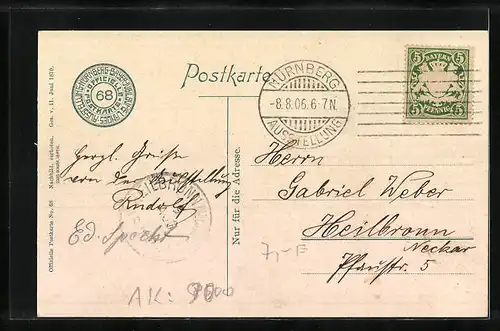 68
Postkarte
NÜRNBERG
-8.8.06.6-7N.
AUSSTELLUNG
BAYERN
5 5
5 PFENNIG 5
Herzl. Grüße
von der Ausstellung
Rudolf
Ed. Specht
HEILBRONN
Nur für die Adresse.
Herrn
Gabriel Weber
Heilbronn
Neckar
Pfaustr. 5
7,- F
AK:
Offizielle Postkarte No. 68
Nachbild. verboten.
Ges. v. 11. Juni 1870.